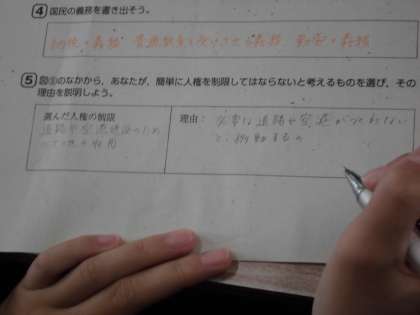 ④ 国民の義務を書き出そう。
納税の義務 普通教育を受けさせる義務 勤労の義務
⑤ 図③のなかから、あなたが、簡単に人権を制限してはならないと考えるものを選び、その
理由を説明しよう。
選んだ人権の制限
道路や空港建設のため
理由: 必要な道路や空港が